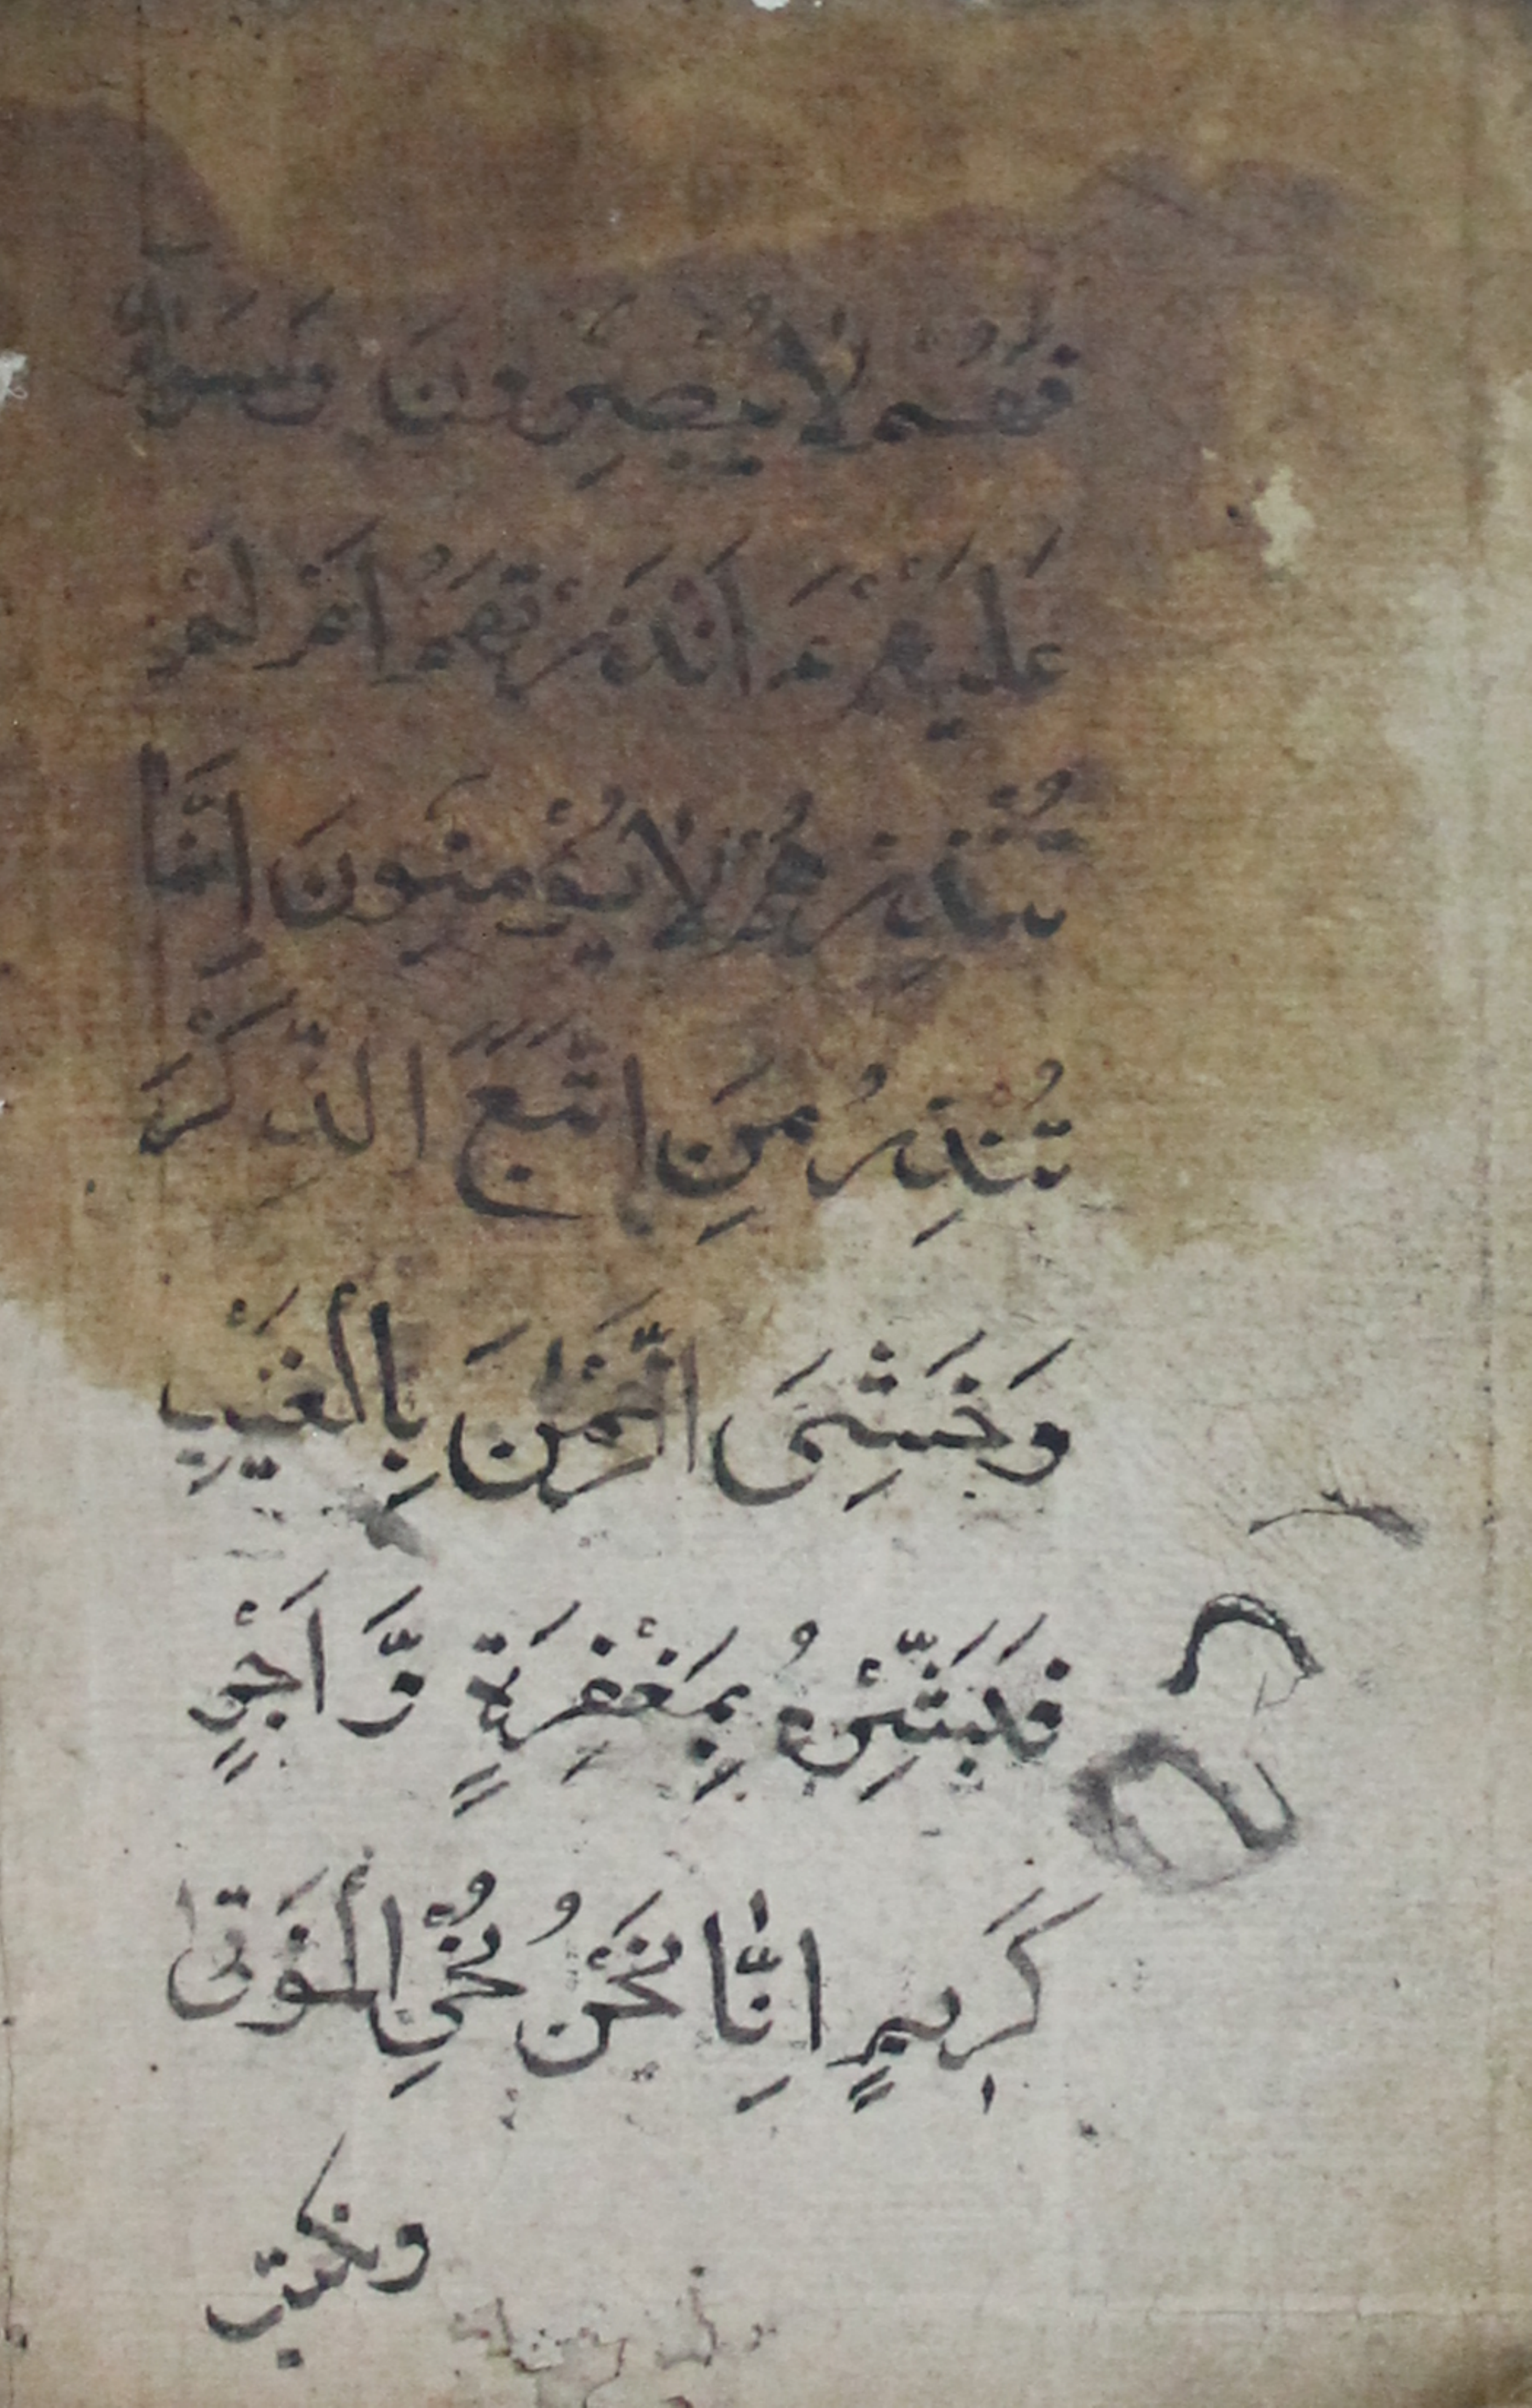 فَهُمْ لَا يُبْصِرُونَ وَسَوَآءٌ
عَلَيْهِمْ ءَاَنْذَرْتَهُمْ اَمْ لَمْ
تُنْذِرْهُمْ لَا يُؤْمِنُونَ اِنَّمَا
تُنْذِرُ مَنِ اتَّبَعَ الذِّكْرَ
وَخَشِىَ الرَّحْمٰنَ بِالْغَيْبِ
فَبَشِّرْهُ بِمَغْفِرَةٍ وَّاَجْرٍ
كَرِيمٍ اِنَّا نَحْنُ نُحْيِ الْمَوْتٰى
ونكتب